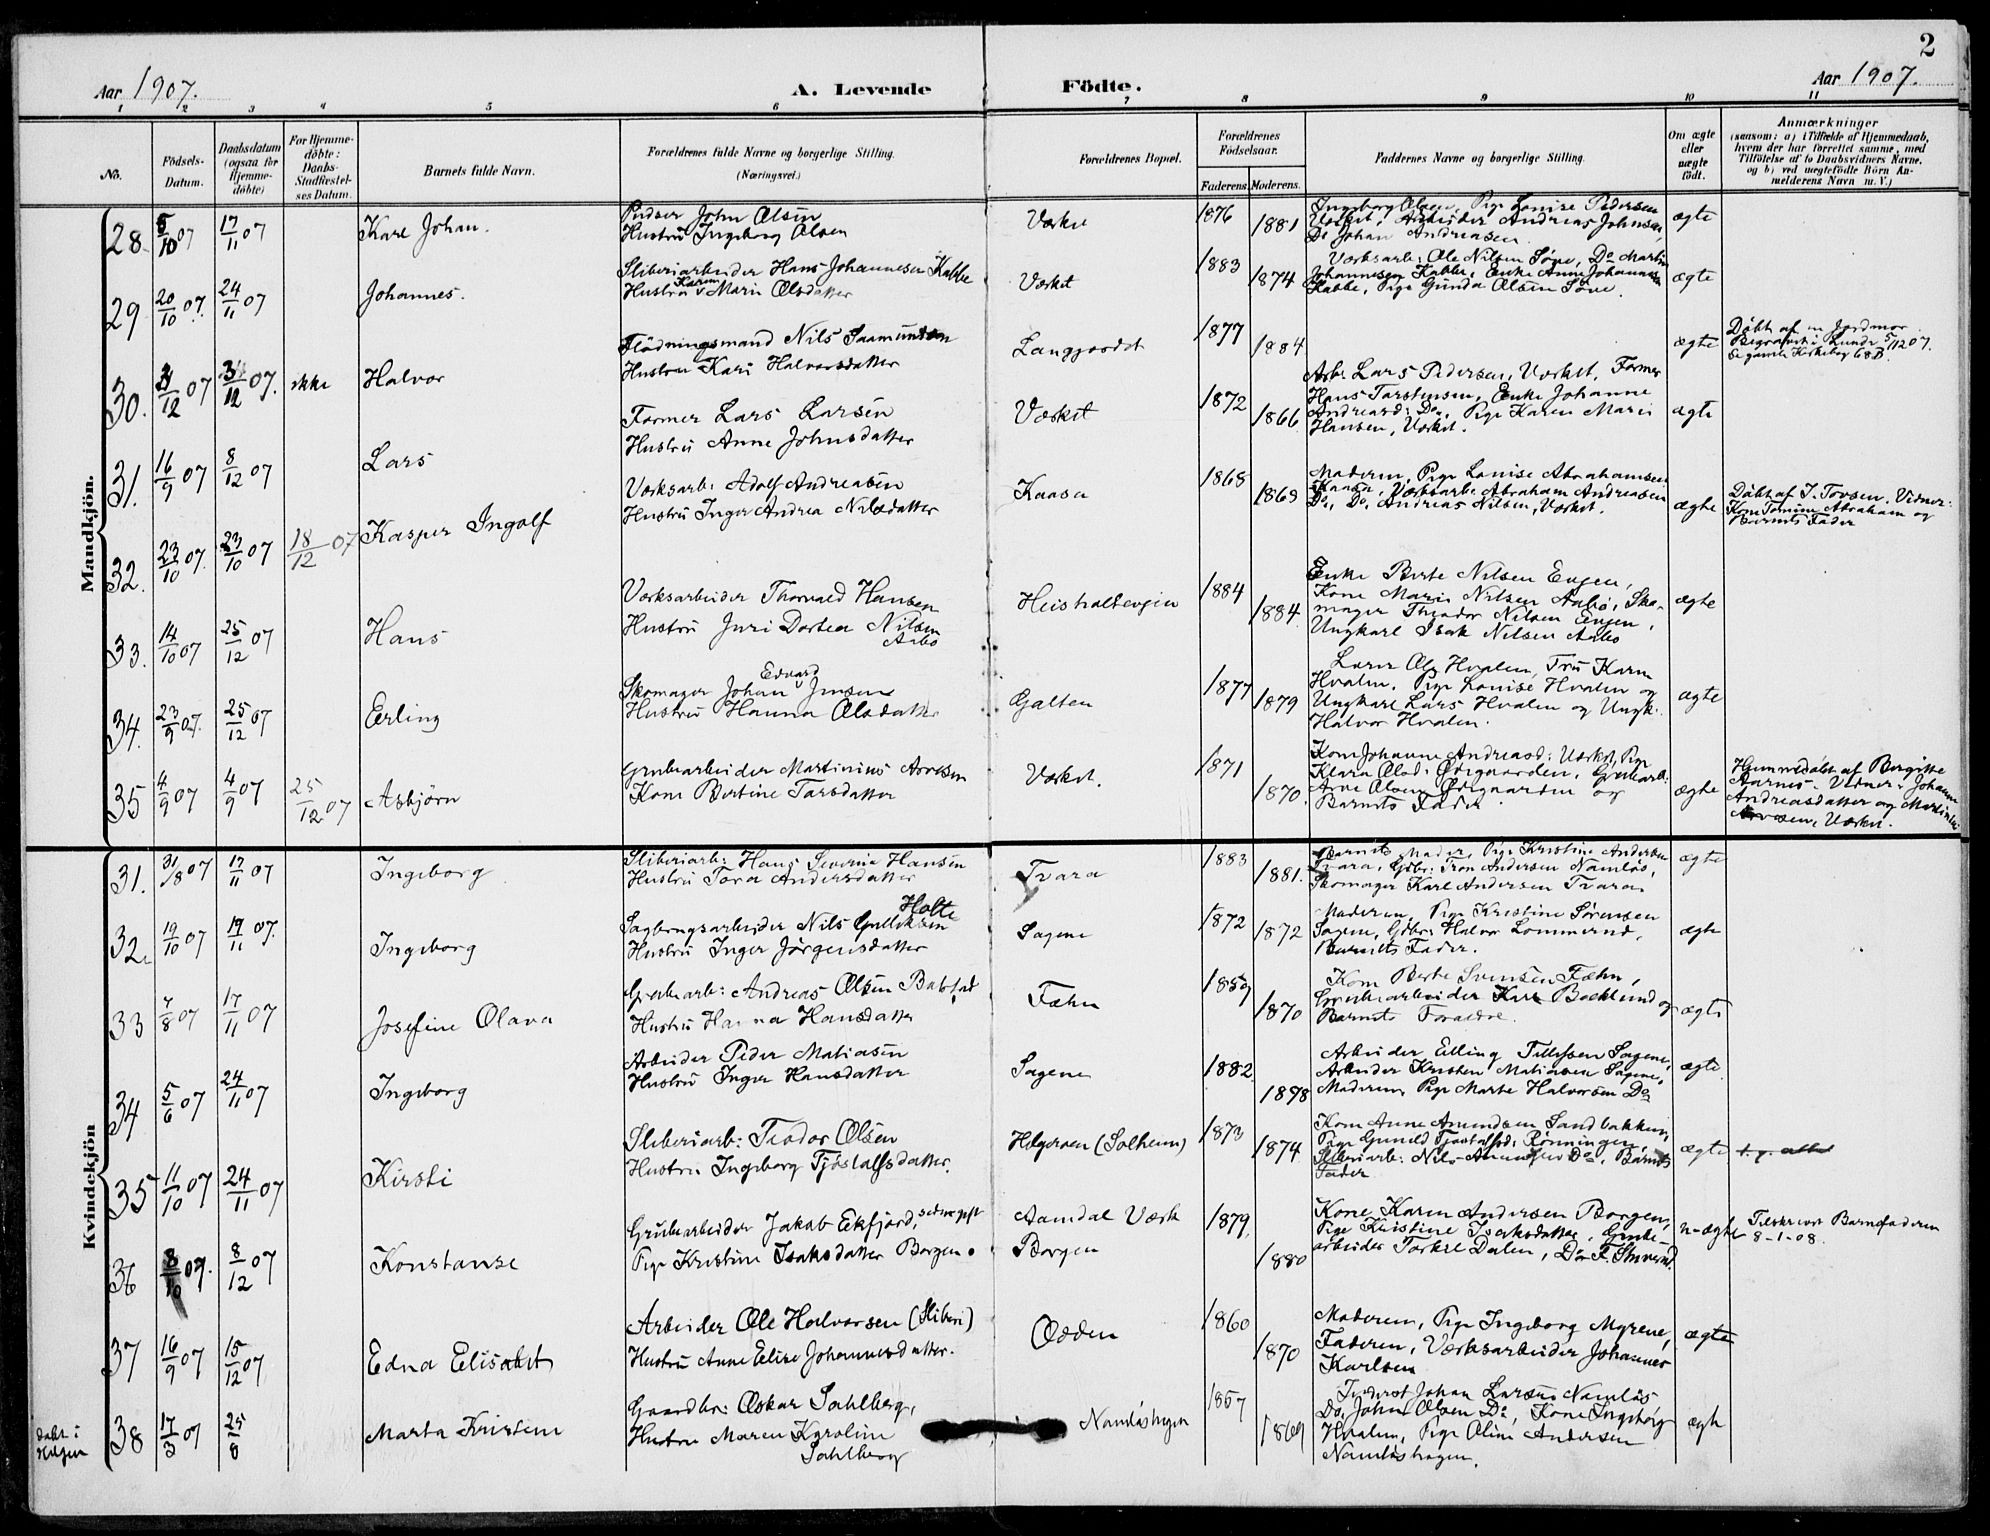 2
Aar 1907. A. Levende Födte. Aar 1907.
1 2 3 4 5 6 7 8 9 10 11
No. Födsels-Datum. Daabsdatum (ogsaa for Hjemmedöbte) For Hjemmedöbte: Daabs-Stadfæstelses Datum. Barnets fulde Navn. Forældrenes fulde Navne og borgerlige Stilling. (Næringsvei.) Forældrenes Bopæl. Forældrenes Födselsaar. Faderens. Moderens. Faddernes Navne og borgerlige Stilling. Om ægte eller uægte födt. Anmærkninger
(saasom: a) i Tilfælde af Hjemmedaab, hvem der har forrettet samme, med Tilföielse af to Daabsvidners Navne, og b) ved uægtefödte Börn Anmelderens Navn m. V.)
Mandkjön.
28. 5/10 07 17/11 07 Karl Johan. Pudser John Olsen
Hustru Ingeborg Olsen
Værket 1876 1881 Ingeborg Olsen, Pige Louise Pedersen
Værket, Arbeider Andreas Johnsen,
Do Johan Andreasen. ægte
29 20/10 07. 24/11 07 Johannes. Sliberiarbeider Hans Johannesen Kabbe
Hustru Karen Marie Olsdatter
Værket 1883 1874 Værksarb: Ole Nilsen Sove, Do Martin
Johannesen Kabbe, Enke Anne Johannesen
Kabbe, Pige Gunda Olsen Sove. ægte
30. 3/12 07 3/12 07. ikke Halvor Flödningsmand Nils Saamundsen
Hustru Kari Halvorsdatter
Langjordet 1877 1884 ægte Döbt af en Jordmor
Begravet i Lunde 5/12 07.
Se gamle Kirkebog 68 B
31. 16/9 07 8/12 07 Lars Former Lars Larsen
Hustru Anne Johnsdatter
Værket 1872 1866 Arb. Lars Pedersen, Værket, Former
Hans Torstensen, Enke Johanne
Andreasd: Do, Pige Karen Marie
Hansen, Værket. ægte
32. 23/10 07. 23/10 07 18/12 07 Kasper Ingolf Værksarb: Adolf Andreasen
Hustru Inger Andrea Nilsdatter
Kaasa 1868 1869 Moderen, Pige Louise Abrahamsen
Kaasa, Værksarb: Abraham Andreasen
Do, Do Andreas Nilsen, Værket. ægte Döbt af J. Tovsen. Vidner:
Kone Tomine Abraham og
Barnets Fader
33. 14/10 07 25/12 07 Hans Værksarbeider Thorvald Hansen
Hustru Juri Dortea Nilsen
Aabo
Heisholteveien 1884 1884. Enke Berte Nilsen Eugen,
Kone Marie Nilsen Aabö, Sko-
mager Theodor Nilsen Eugen,
Ungkarl Isak Nilsen Aabo ægte
34. 23/9 07. 25/12 07 Erling Skomager Johan Edvard Jensen
Hustru Hanna Olsdatter
Galten 1877 1879 Lærer Ole Hvalen, Fru Karen
Hvalen, Pige Louise Hvalen og
Ungkarl Lars Hvalen og Ungk.
Halvor Hvalen. ægte
35 4/9 07 4/9 07 25/12 07 Asbjörn Grubearbeider Martinius Arvesen
Kone Bertine Larsdatter
Værket. 1871 1870. Kone Johanne Andreasd: Værket, Pige
Klara Olsd: Ödegaarden, Grubearb:
Arne Olsen Ödegaarden og
Barnets Fader. ægte Hjemmedöbt af Birgitte
Aarnes. Vidner: Johanne
Andreasdatter og Martinius
Arvesen, Værket.
Kvindekjön
31. 31/8 07 17/11 07 Ingeborg Sliberiarb: Hans Severin Hansen
Hustru Tora Andersdatter
Tvara 1883 1881. Barnets Moder, Pige Kristine Andersen
Tvara, Gdbr: Tron Andersen Namløs,
Skomager Karl Andersen Tvara. ægte
32. 19/10 07 17/11 07. Ingeborg Sagbrugsarbeider Nils Gulleksen Holte
Hustru Inger Jörgensdatter
Sagene 1872 1872 Moderen, Pige Kristine Sørensen
Sagene, Gdbr: Halvor Lommerud,
Barnets Fader. ægte
33 7/8 07 17/11 07 Josefine Olava Grubearb: Andreas Olsen Bakstad
Hustru Hanna Hansdatter
Fæhn 1859 1870 Kone Berte Svensen Fæhn,
Grubearbeider Karl Backlund og
Barnets Forældre. ægte
34 5/6 07 24/11 07 Ingeborg Arbeider Peder Matiasen
Hustru Inger Hansdatter
Sagene 1882. 1878 Arbeider Elling Tellefsen Sagene,
Arbeider Kristen Matiasen Sagene,
Moderen, Pige Marte Halvorsen Do ægte.
35 11/10 07 24/11 07 Kirsti Sliberiarb: Teodor Olsen
Hustru Ingeborg Tjöstolfsdatter.
Helgeroen (Solheim) 1873 1874 Kone Anne Amundsen Sandbakken,
Pige Gunild Tjöstolfsd: Rønningen,
Sliberiarb: Nils Amundsen Do, Barnets
Fader ægte
36 8/10 07. 8/12 07 Konstanse Grubearbeider Jakob Eikfjord, senere gift
Pige Kristine Isaksdatter Borgen.
Aamdal Værk
Borgen 1879. 1880 Kone Karen Andersen Borgen,
Pige Kristine Isaksdatter, Grube-
arbeider Torkel Dalen, Do F. Stuverud. u-ægte Tilskrevet Barnefaderen
8-1-08.
37 16/9 07 15/12 07 Edna Elisabet Arbeider Ole Halvorsen (Sliberi)
Hustru Anne Elise Johannesdatter.
Odden 1860 1870 Moderen, Pige Ingeborg Myrene,
Faderen, Værksarbeider Johannes
Karlsen ægte
døbt i
Helgen 38 17/3 07 25/8 Marta Kristine Gaardbr. Oskar Sahlberg,
Hustru Maren Karoline
Sahlberg
Namløshagen 1857 1869 Inderst Johan Larsen Namløs
Do John Olsen Do, Kone Ingeborg
Hvalen, Pige Oline Andersen
Namløshagen. ægte